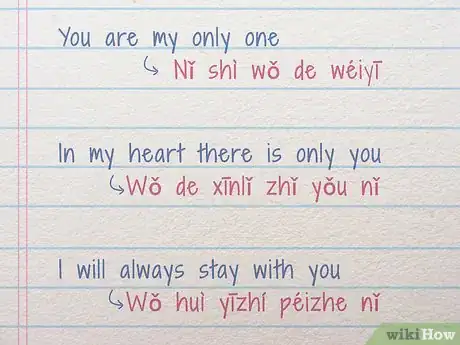 You are my only one
Nǐ shì wǒ de wéiyī
In my heart there is only you
Wǒ de xīnlǐ zhǐ yǒu nǐ
I will always stay with you
Wǒ huì yīzhí péizhe nǐ
wikiHow